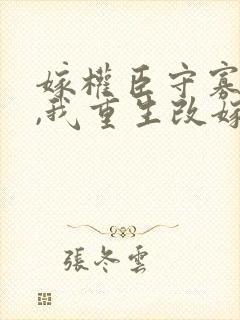 嫁權臣守寡
,我重生改嫁
張冬雲